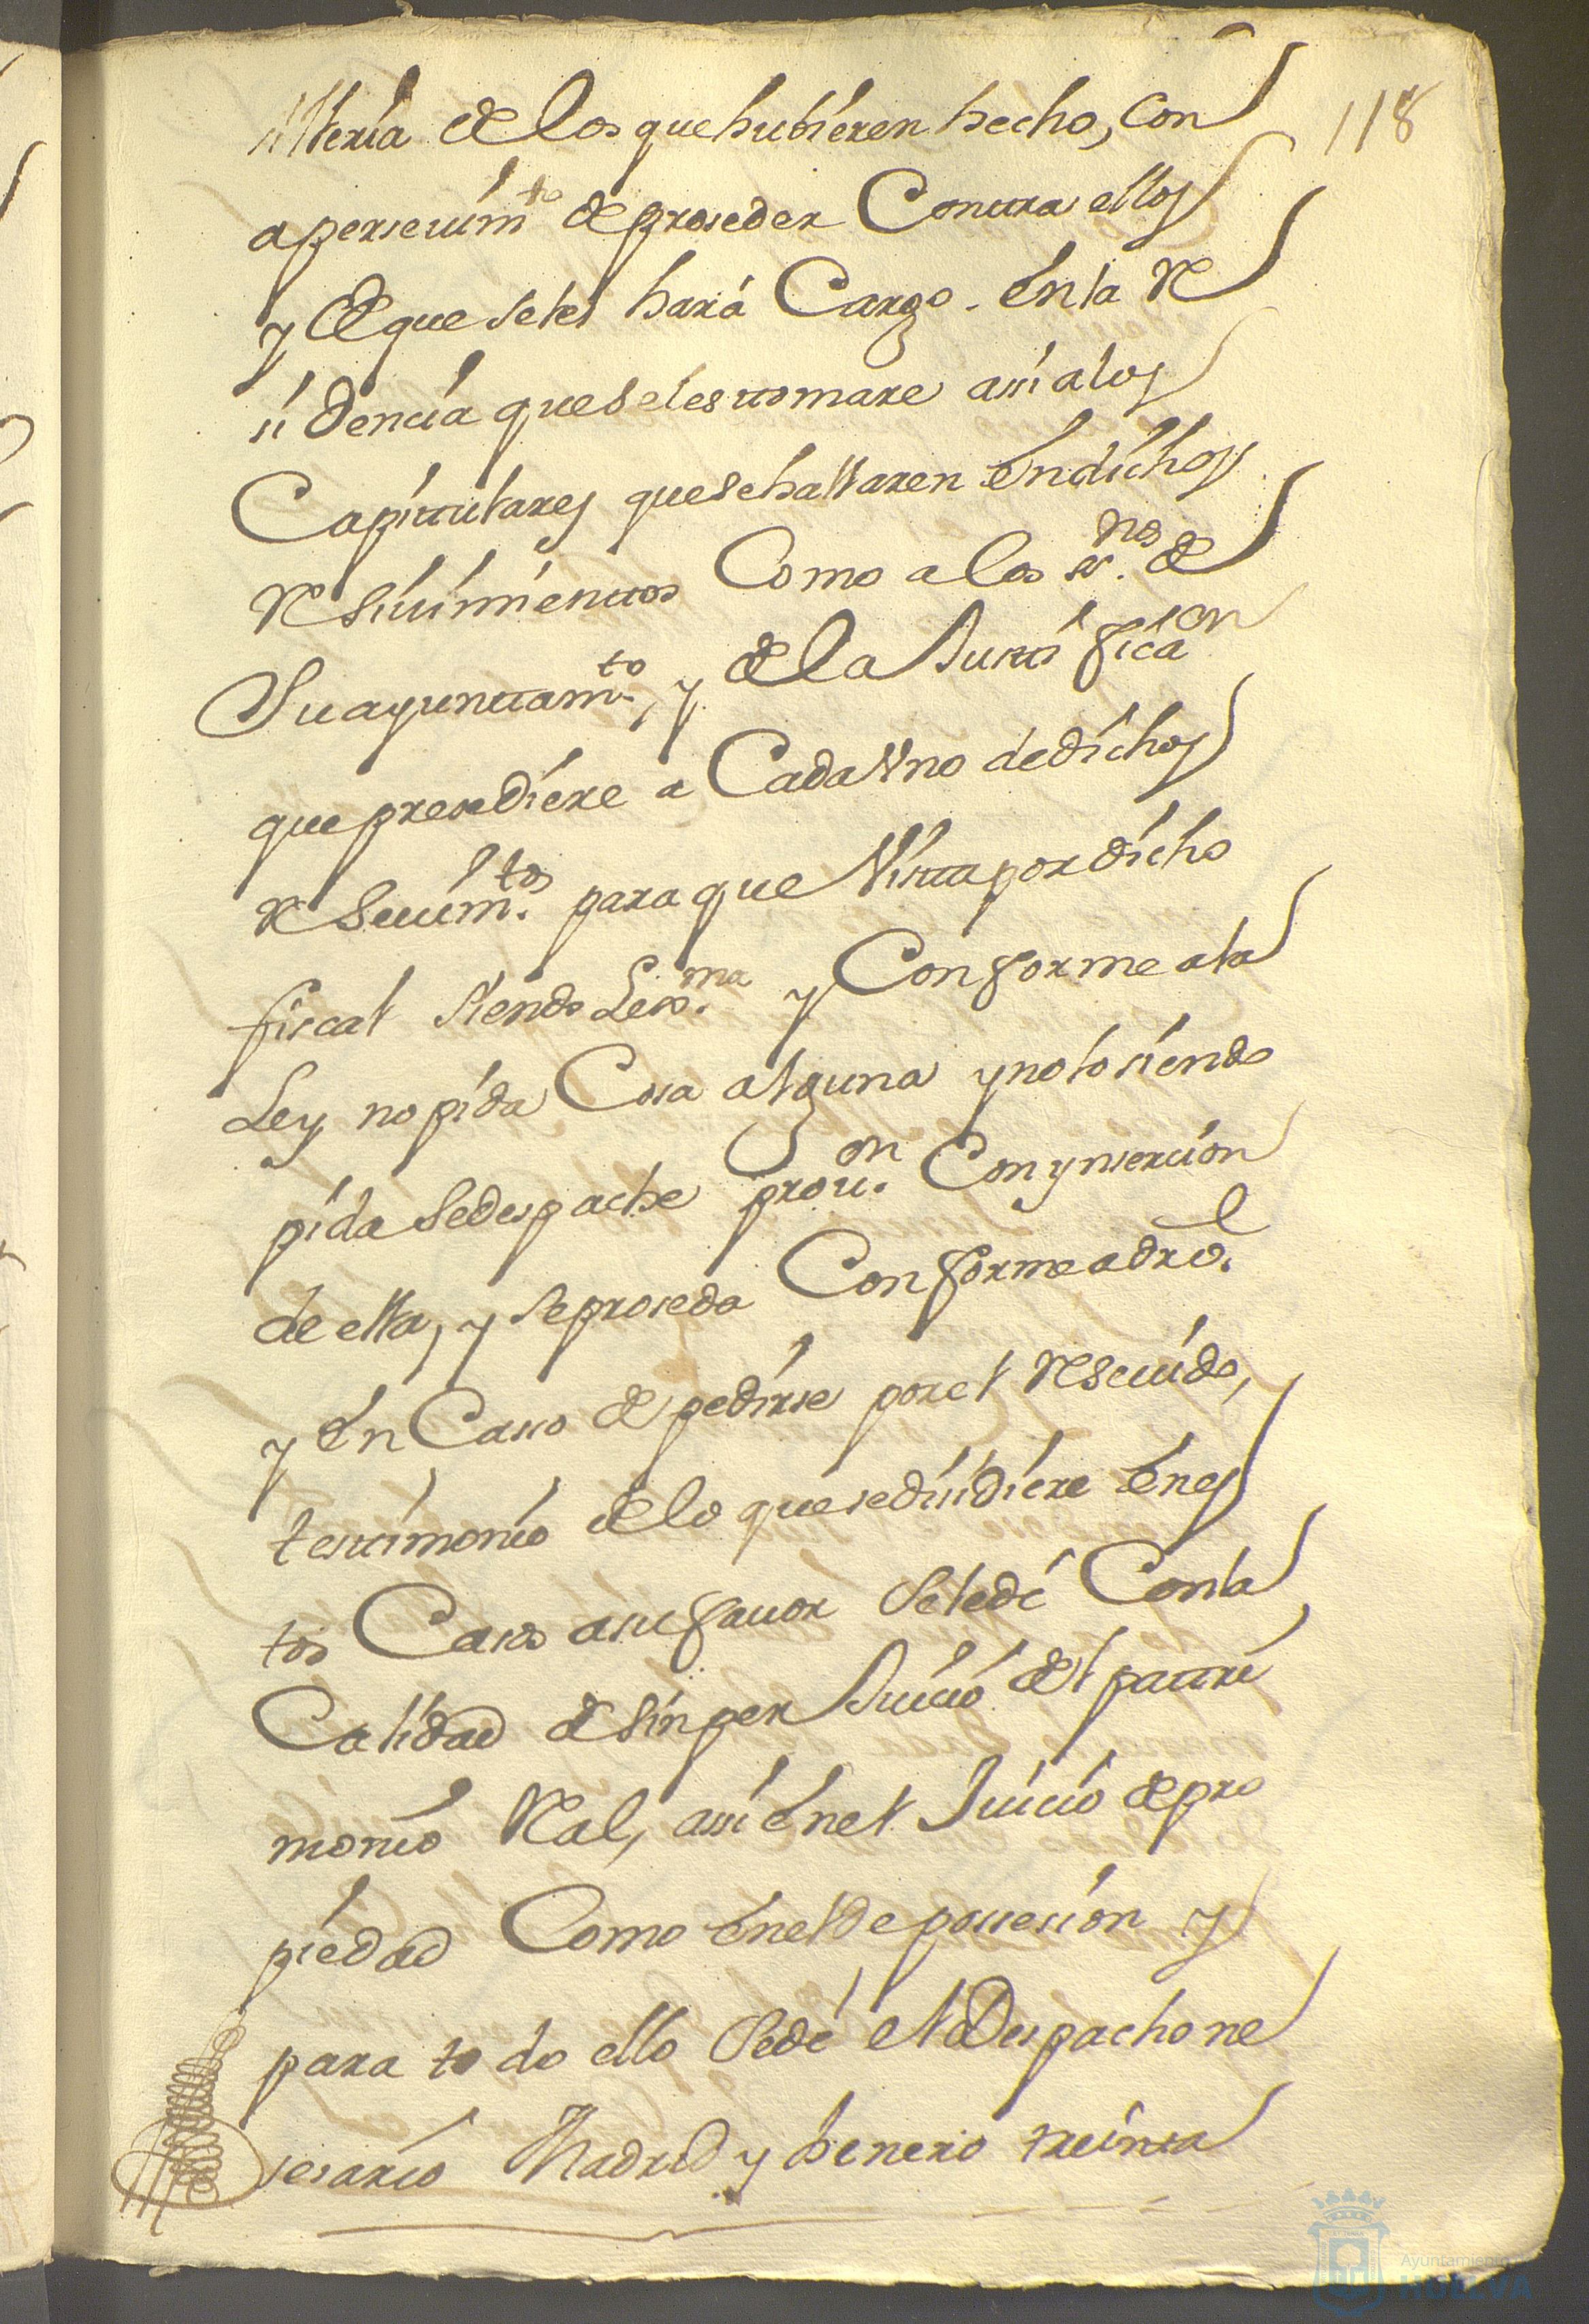 118
llería de los que hubieren hecho, con
aperseuim.to de proseder Contra ellos
y de que se les hará Cargo. en la Re
sidencia que se les tomare assi a los
Capitulares que se hallaren en dichos
Resiuimientos Como a los ss.nos de
Su ayuntam.to, y de la Justificaion
que presediere a Cada Vno de dichos
Reseuim.tos para que Vista por dicho
fiscal siendo Lexma. y Conforme a la
Ley no pida Cosa alguna y no lo siendo
pida se despache prou.on Con ynsercion
de ella, y se proseda Conforme a dro.
y en Casso de pedirse por el Reseuido,
testimonio de lo que se desidiere en es
tos Casos a su fauor se le dé Con la
Calidad de sin perJuicio del patri
monio Real, assi en el Juicio de pro
piedad Como en el de possesion y
para todo ello se dé el Despacho ne
sesario Madrid y henero treinta
Ayuntamiento de
HUELVA